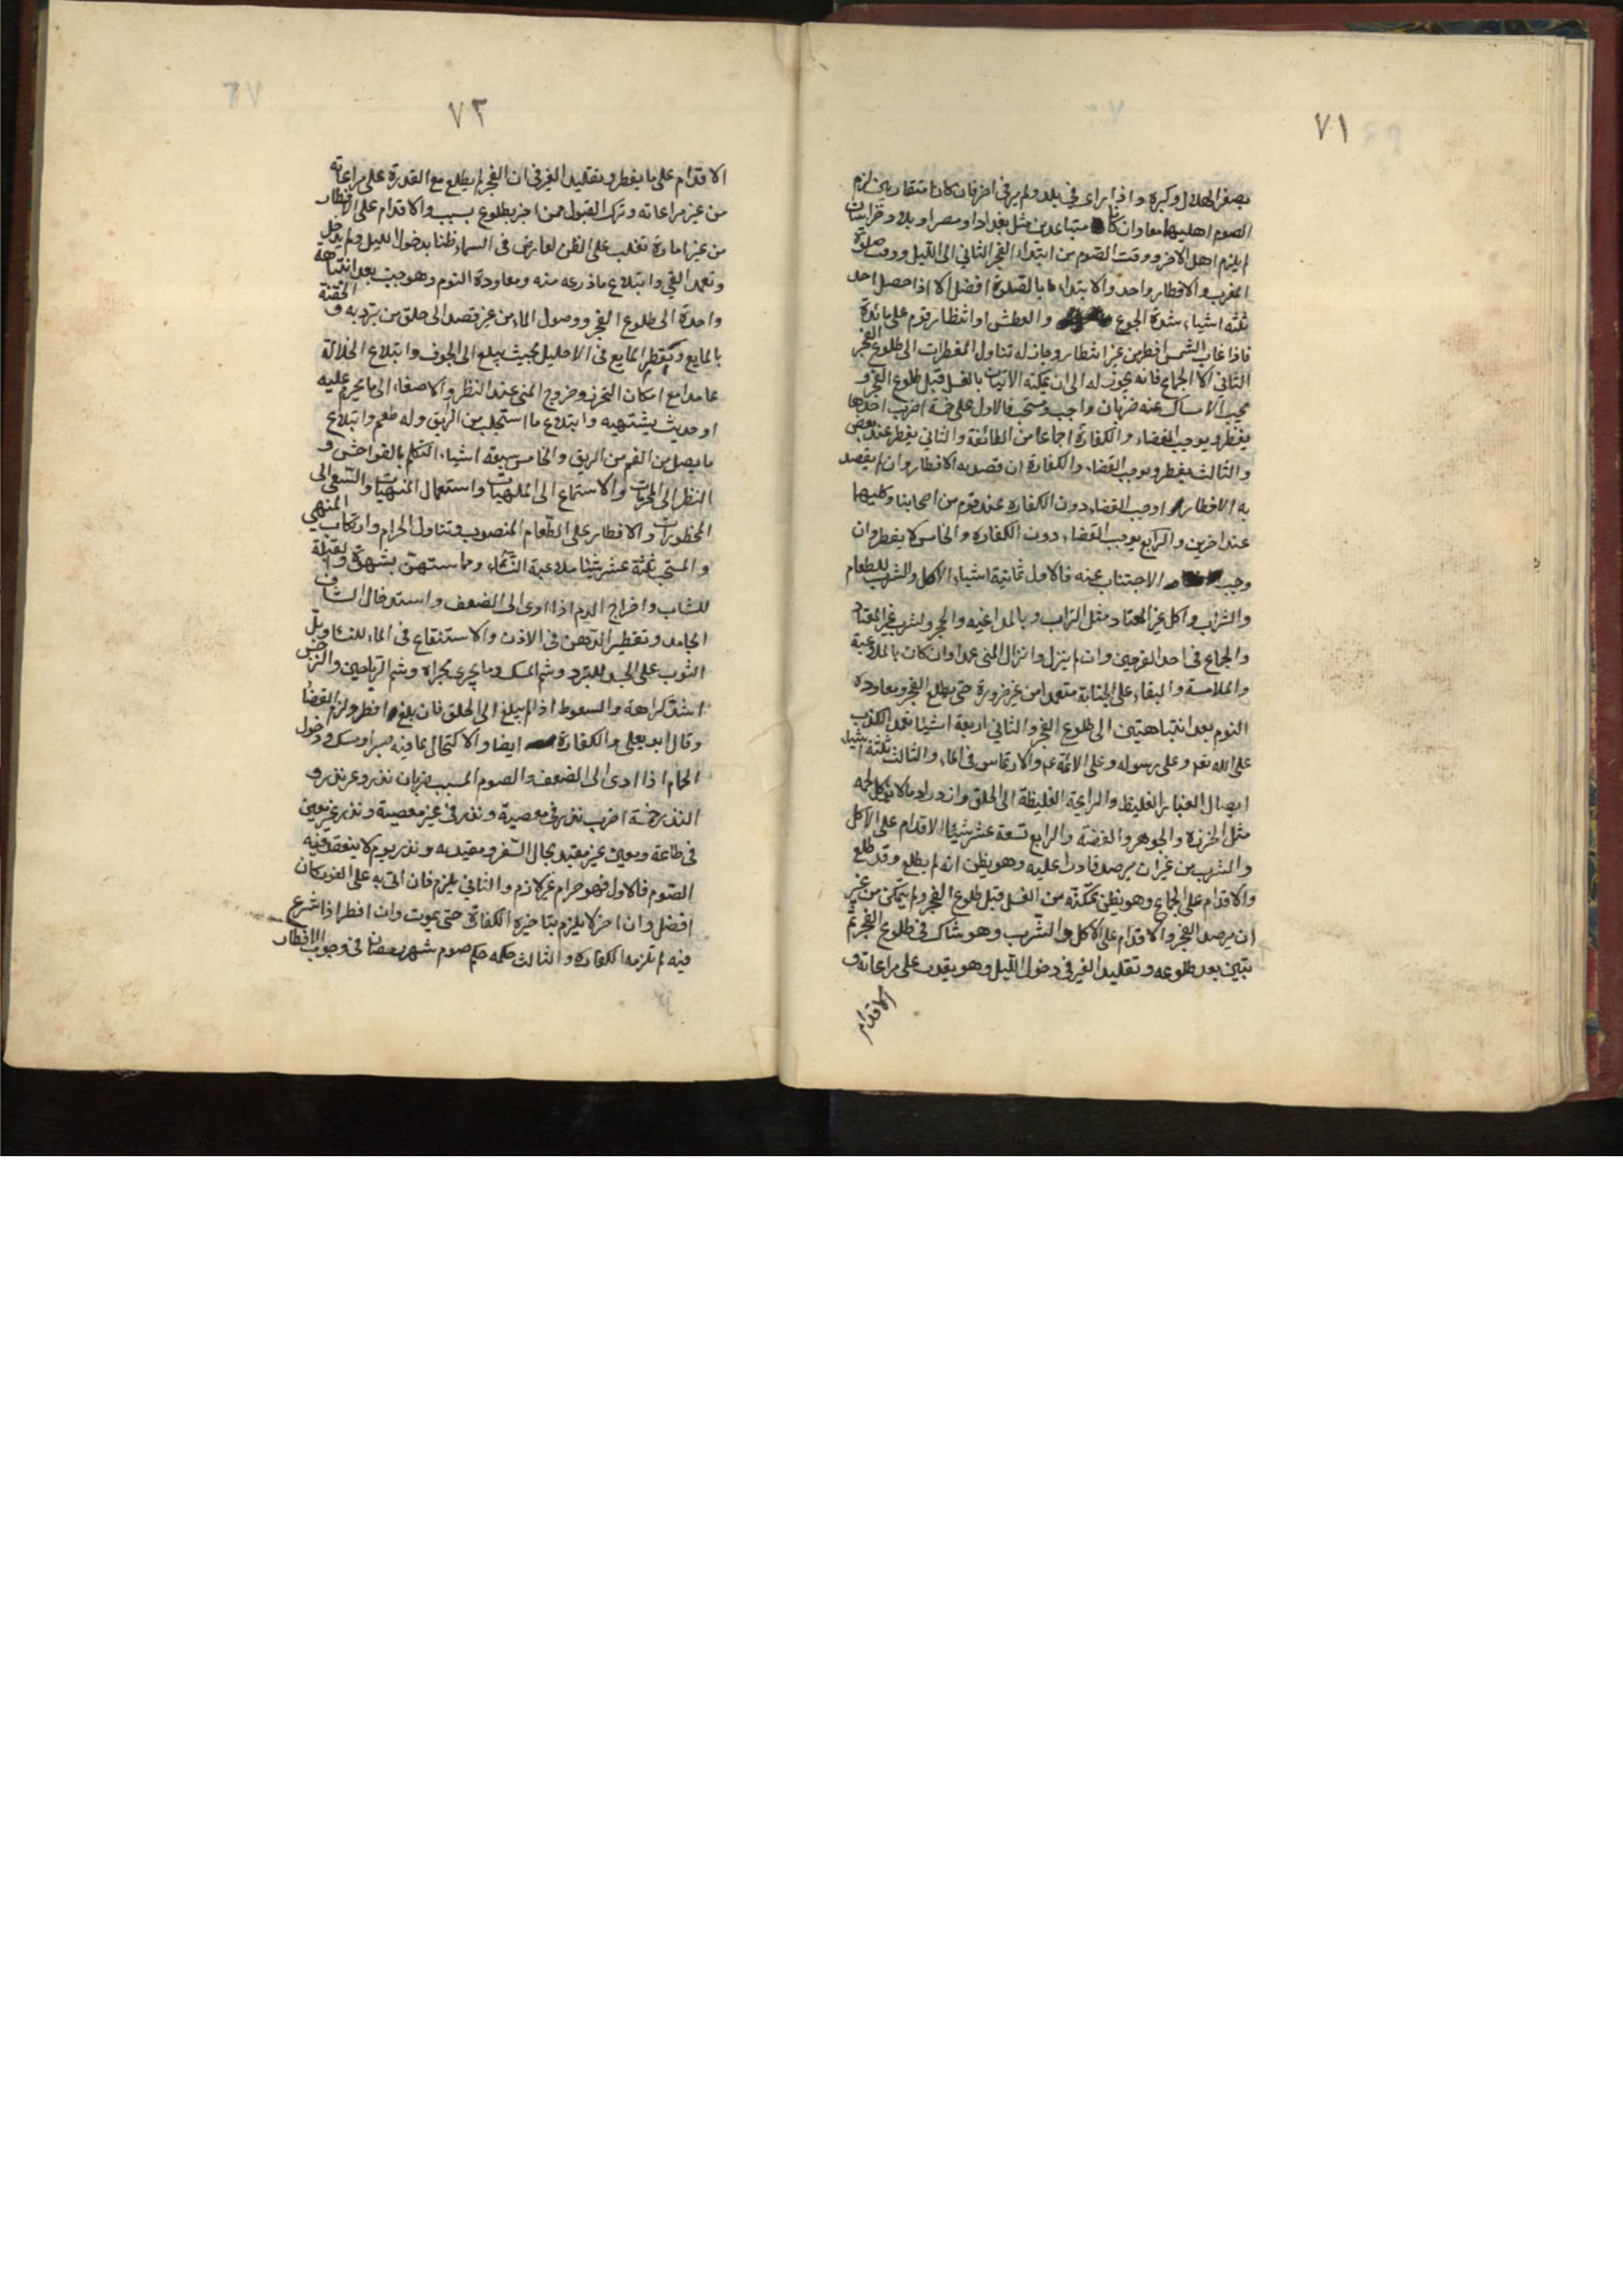 ٧١
بصغر الهلال وكبره واذا رای فی بلد ولم یر فی اخر فان كانا متقاربین لزم
الصوم اهلیهما معا وان كانا متباعدین مثل بغداد او مصر او بلاد خراسان
لم یلزم اهل الاخر ووقت الصوم من ابتداء الفجر الثانی الی اللیل ووقت صلوة
المغرب والافطار واحد والابتداء بالصلوة افضل الا اذا حصل احد
ثلثة اشیاء شدة الجوع والعطش او انتظار قوم علی مائدة
فاذا غاب الشمس افطر من غیر انتظار وجاز له تناول المفطرات الی طلوع الفجر
الثانی الا الجماع فانه یجوز له الی ان یمكنه الاتیان بالغسل قبل طلوع الفجر و
یجب الامساك عنه ضربان واجب ومستحب فالاول علی خمسة اضرب احدها
یفطر ویوجب القضاء والكفارة اجماعا من الطائفة والثانی یفطر عند بعض
والثالث یفطر ویوجب القضاء والكفارة ان قصد به الافطار وان لم یقصد
به الافطار اوجب القضاء دون الكفاره عند قوم من اصحابنا وكلیهما
عند اخرین والرابع یوجب القضاء دون الكفاره والخامس لا یفطر وان
وجب الاجتناب عنه فالاول ثمانیة اشیاء الاكل والشرب للطعام
والشراب واكل غیر المعتاد مثل التراب وبالمداغیه والحجر ولشرب غیر المعتاد
والجماع فی احد الفرجین وان لم ینزل وانزال المنی عمدا وان كان بالملاعبة
والملامسة والبقاء علی الجنابة متعمدا من غیر ضرورة حتی یطلع الفجر ومعاوده
النوم بعد انتباهتین الی طلوع الفجر والثانی اربعة اشیا تعمد الكذب
علی الله تعه وعلی رسوله وعلی الائمة عم والارتماس فی الماء والثالث ثلثة اشیاء
ایصال الغبار الغلیظ والرایحة الغلیظة الی الحلق وازدراد ما لا یؤكل لحمه
مثل الخرزة والجوهر والفضة والرابع تسعة عشر شیئا الاقدام علی الاكل
والشرب من غیر ان یرصد قادرا علیه وهو یظن انه لم یطلع وقد طلع
والاقدام علی الجماع وهو یظن تمكنه من الغسل قبل طلوع الفجر ولم یتمكن من غیر
ان یرصد الفجر والاقدام علی الاكل والشرب وهو شاك فی طلوع الفجر ثم
تبین بعد طلوعه وتقلید الغیر فی دخول اللیل وهو یقدر علی مراعاته و
الاقدام
٧٢
الاقدام علی ما یفطر وتقلید الغیر فی ان الفجر لم یطلع مع القدرة علی مراعاته
من غیر مراعاته وترك القبول ممن اخبر بطلوع بسبب والاقدام علی الافطار
من غیر امارة تغلب علی الظن لعارض فی السماء ظنا بدخول اللیل ولم یدخل
وتعمد القی وابتلاع ماذرعه منه ومعاودة النوم وهو جنب بعد انتباهة
واحدة الی طلوع الفجر ووصول الماء من غیر قصد الی حلق من یتبرد به و الحقنة
بالمایع وتقطر المایع فی الاحلیل بحیث یبلغ الی الجوف وابتلاع الخلالة
عامدا مع امكان التحرز وخروج المنی عند النظر والاصغاء الی ما یحرم علیه
او حدیث یشتهیه وابتلاع ما استجلب من الریق وله طعم وابتلاع
ما یصل من الفم من الریق والخامس سبعة اشیاء التكلم بالفواحش و
النظر الی المحرمات والاستماع الی الملهیات واستعمال المنهیات والسعی الی
المحظورات والافطار علی الطعام المغصوب وتناول الحرام وارتكاب المنهی
والمستحب ثلثة عشر شیئا ملاعبة النساء ومماستهن بشهوة والقبلة
للشاب واخراج الدم اذا ادی الی الضعف واستدخال الشاف
الجامد وتقطیر الدهن فی الاذن والاستنقاع فی الماء للنساء وبل
الثوب علی الجسد للتبرد وشم المسك وما یجری مجراه وشم الریاحین والنرجس
اشد كراهة والسعوط اذا لم یبلغ الی الحلق فان بلغ افطر ولزم القضاء
وقال ابو یعلی والكفارة ایضا والاكتحال بما فیه صبر او مسك ودخول
الحمام اذا ادی الی الضعف والصوم المسبب ضربان نذر وغیر نذر و
النذر خمسة اضرب نذر فی معصیة ونذر فی غیر معصیة ونذر غیر معین
فی طاعة ومعین غیر مقید بحال السفر ومقید به ونذر یوم لا ینعقد فیه
الصوم فالاول فهو حرام غیر لازم والثانی یلزم فان اتی به علی الفور كان
افضل وان اخر لا یلزم بتاخیره الكفارة حتی یموت وان افطر اذا شرع
فیه لم تلزمه الكفاره والثالث حكمه حكم صوم شهر رمضان فی وجوب الافطار